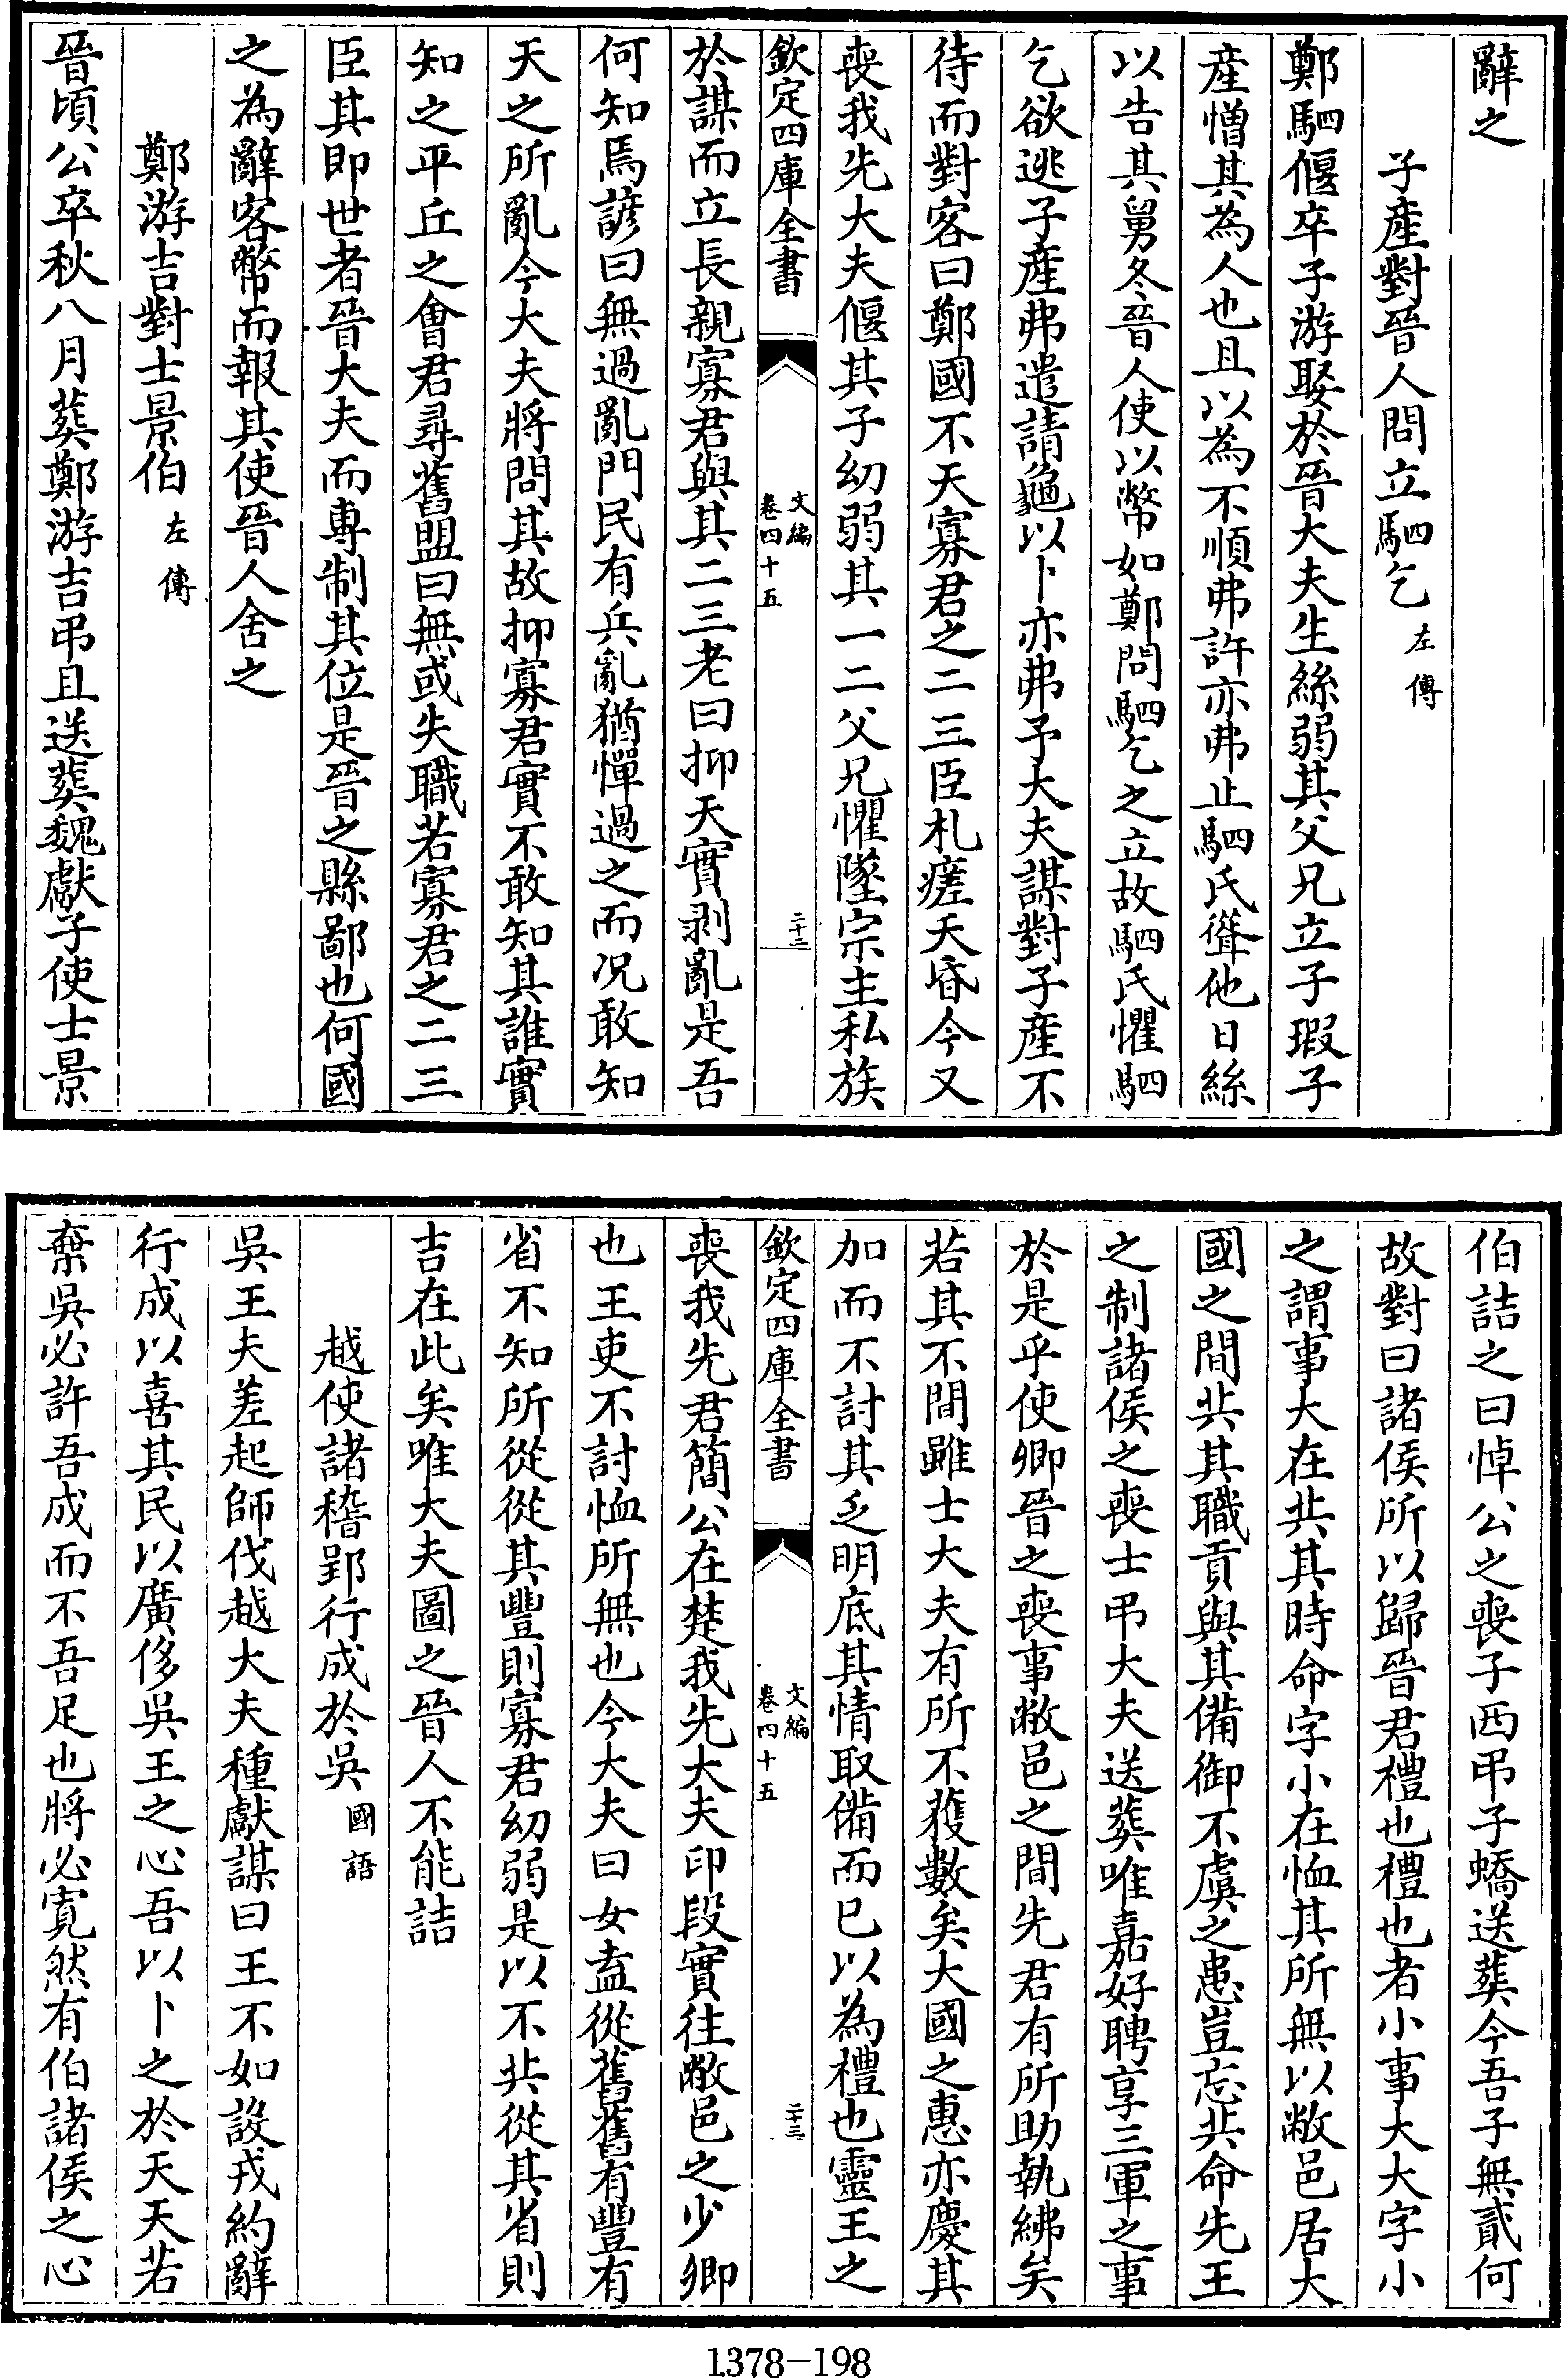 辭之
子產對晉人問立駟乞左傳
鄭駟偃卒子游娶於晉大夫生絲弱其父兄立子瑕子
產憎其為人也且以為不順弗許亦弗止駟氏聳他日絲
以告其舅冬晉人使以幣如鄭問駟乞之立故駟氏懼駟
乞欲逃子產弗遣請龜以卜亦弗予大夫謀對子產不
待而對客曰鄭國不天寡君之二三臣札瘥夭昏今又
喪我先大夫偃其子幼弱其一二父兄懼墜宗主私族
欽定四庫全書 文編卷四十五 二十二
於謀而立長親寡君與其二三老曰抑天實剥亂是吾
何知焉諺曰無過亂門民有兵亂猶憚過之而況敢知
天之所亂今大夫將問其故抑寡君實不敢知其誰實
知之平丘之會君尋舊盟曰無或失職若寡君之二三
臣其即世者晉大夫而專制其位是晉之縣鄙也何國
之為辭客幣而報其使晉人舍之
鄭游吉對士景伯左傳
晉頃公卒秋八月葬鄭游吉弔且送葬魏獻子使士景
伯詰之曰悼公之喪子西弔子蟜送葬今吾子無貳何
故對曰諸侯所以歸晉君禮也禮也者小事大大字小
之謂事大在共其時命字小在恤其所無以敝邑居大
國之間共其職貢與其備御不虞之患豈忘共命先王
之制諸侯之喪士弔大夫送葬唯嘉好聘享三軍之事
於是乎使卿晉之喪事敝邑之間先君有所助執紼矣
若其不間雖士大夫有所不獲數矣大國之惠亦慶其
加而不討其乏明底其情取備而已以為禮也靈王之
欽定四庫全書 文編卷四十五 二十三
喪我先君簡公在楚我先大夫印段實往敝邑之少卿
也王吏不討恤所無也今大夫曰女盍從舊舊有豐有
省不知所從從其豐則寡君幼弱是以不共從其省則
吉在此矣唯大夫圖之晉人不能詰
越使諸稽郢行成於吳國語
吳王夫差起師伐越大夫種獻謀曰王不如設戎約辭
行成以喜其民以廣侈吳王之心吾以卜之於天天若
棄吳必許吾成而不吾足也將必寬然有伯諸侯之心
1378-198